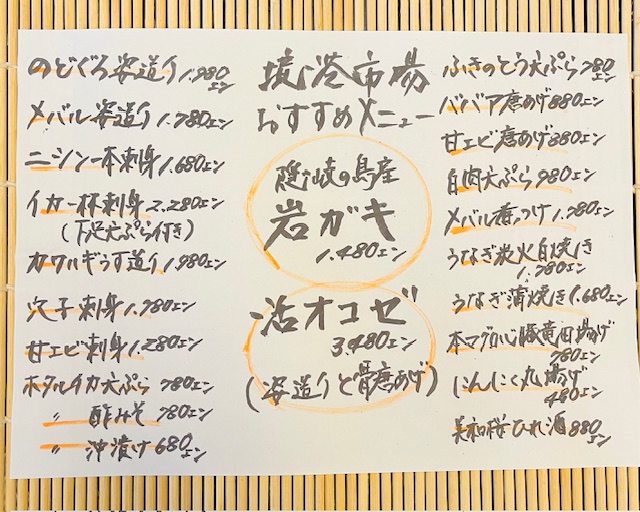 のどぐろ姿造り 1.980エン
メバル姿造り 1.780エン
ニシン一本刺身 1.680エン
イカ一杯刺身 2.280エン
(下足天ぷら付き)
カワハギうす造り 1.980エン
穴子刺身 1.780エン
甘エビ刺身 1.280エン
ホタルイカ天ぷら 780エン
〃 酢みそ 780エン
〃 沖漬け 680エン
境港市場
おすすめメニュー
隠岐の島産
岩ガキ
1.480エン
活オコゼ
3.480エン
(姿造りと骨唐あげ)
ふきのとう天ぷら 780エン
ババア唐あげ 880エン
甘エビ唐あげ 880エン
白肉天ぷら 980エン
メバル煮つけ 1.780エン
うなぎ炭火白焼き
1.780エン
うなぎ蒲焼き 1.680エン
本マグロ心臓竜田揚げ
780エン
にんにく丸揚げ
480エン
美和桜ひれ酒 880エン